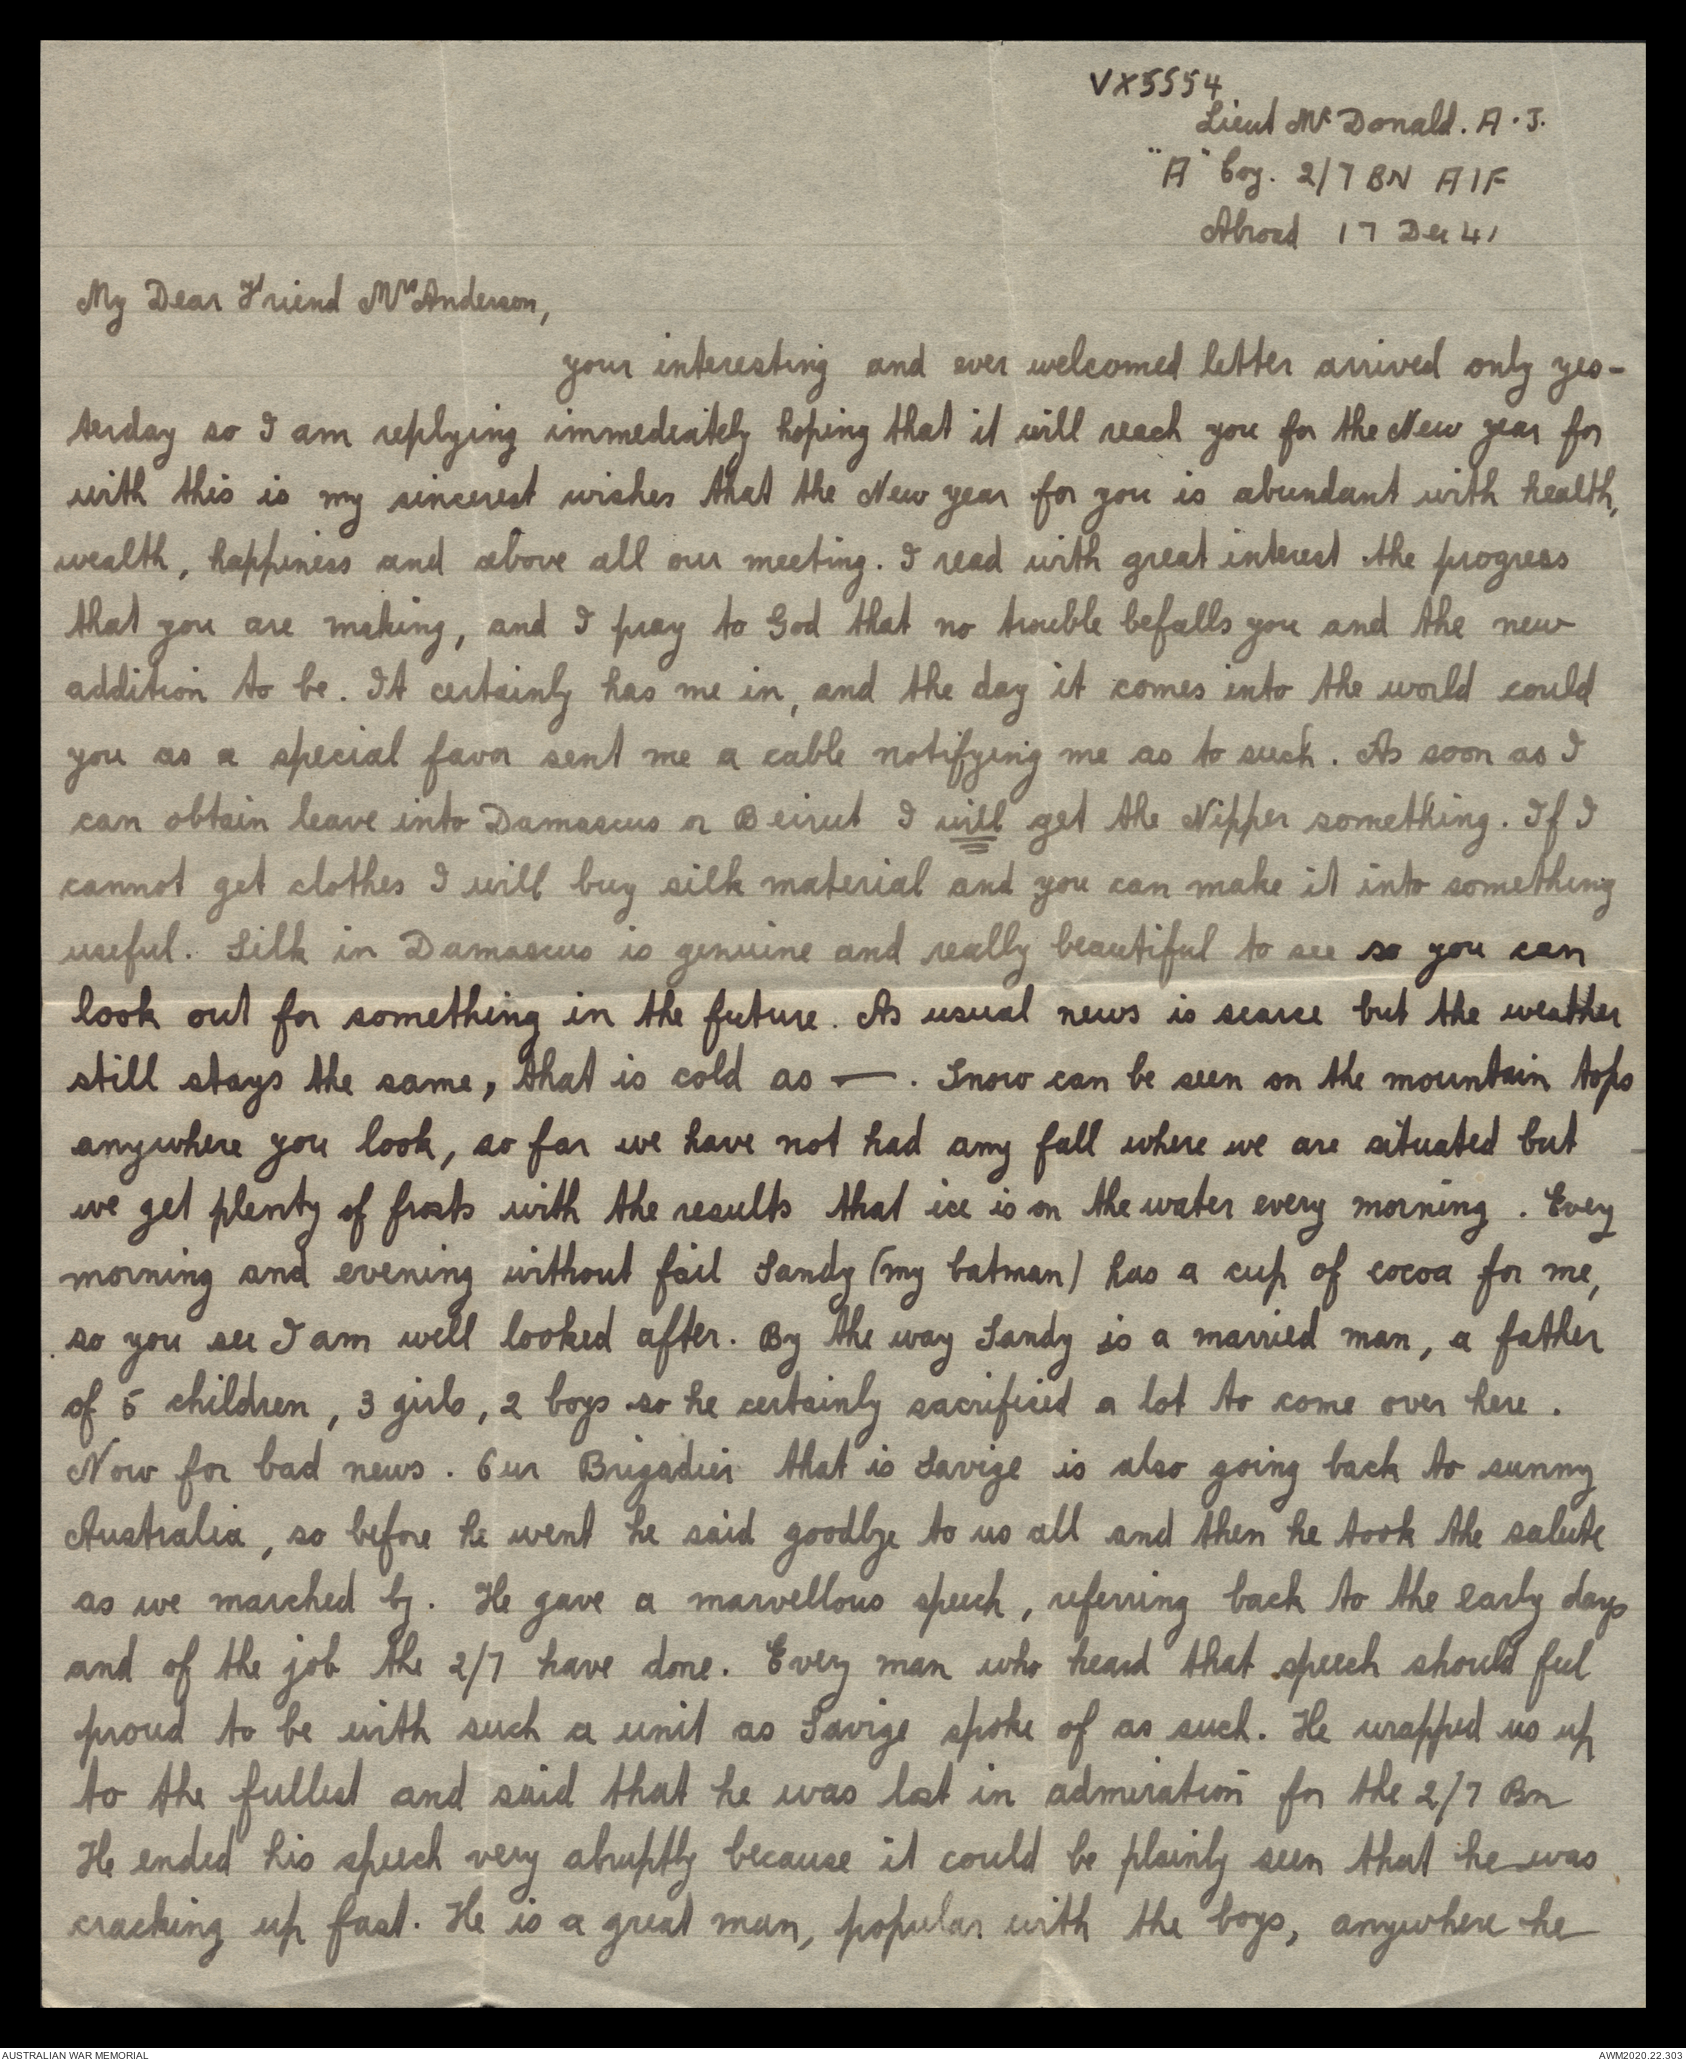 VX5554
Lieut McDonald. A. J.
"A" Coy. 2/7 BN AIF
Abroad 17 Dec 41
My Dear Friend Mrs Anderson,
your interesting and ever welcomed letter arrived only yes-
terday so I am replying immediately hoping that it will reach you for the New year for
with this is my sincerest wishes that the New year for you is abundant with health,
wealth, happiness and above all our meeting. I read with great interest the progress
that you are making, and I pray to God that no trouble befalls you and the new
addition to be. It certainly has me in, and the day it comes into the world could
you as a special favor sent me a cable notifying me as to such. As soon as I
can obtain leave into Damascus or Beirut I will get the Nipper something. If I
cannot get clothes I will buy silk material and you can make it into something
useful. Silk in Damascus is genuine and really beautiful to see so you can
look out for something in the future. As usual news is scarce but the weather
still stays the same, that is cold as —. Snow can be seen on the mountain tops
anywhere you look, so far we have not had any fall where we are situated but
we get plenty of frosts with the results that ice is on the water every morning. Every
morning and evening without fail Sandy (my batman) has a cup of cocoa for me,
so you see I am well looked after. By the way Sandy is a married man, a father
of 5 children, 3 girls, 2 boys so he certainly sacrificed a lot to come over here.
Now for bad news. Our Brigadier that is Savige is also going back to sunny
Australia, so before he went he said goodbye to us all and then he took the salute
as we marched by. He gave a marvellous speech, referring back to the early days
and of the job the 2/7 have done. Every man who heard that speech should feel
proud to be with such a unit as Savige spoke of as such. He wrapped us up
to the fullest and said that he was lost in admiration for the 2/7 Bn
He ended his speech very abruptly because it could be plainly seen that he was
cracking up fast. He is a great man, popular with the boys, anywhere he
AUSTRALIAN WAR MEMORIAL
AWM2020.22.303